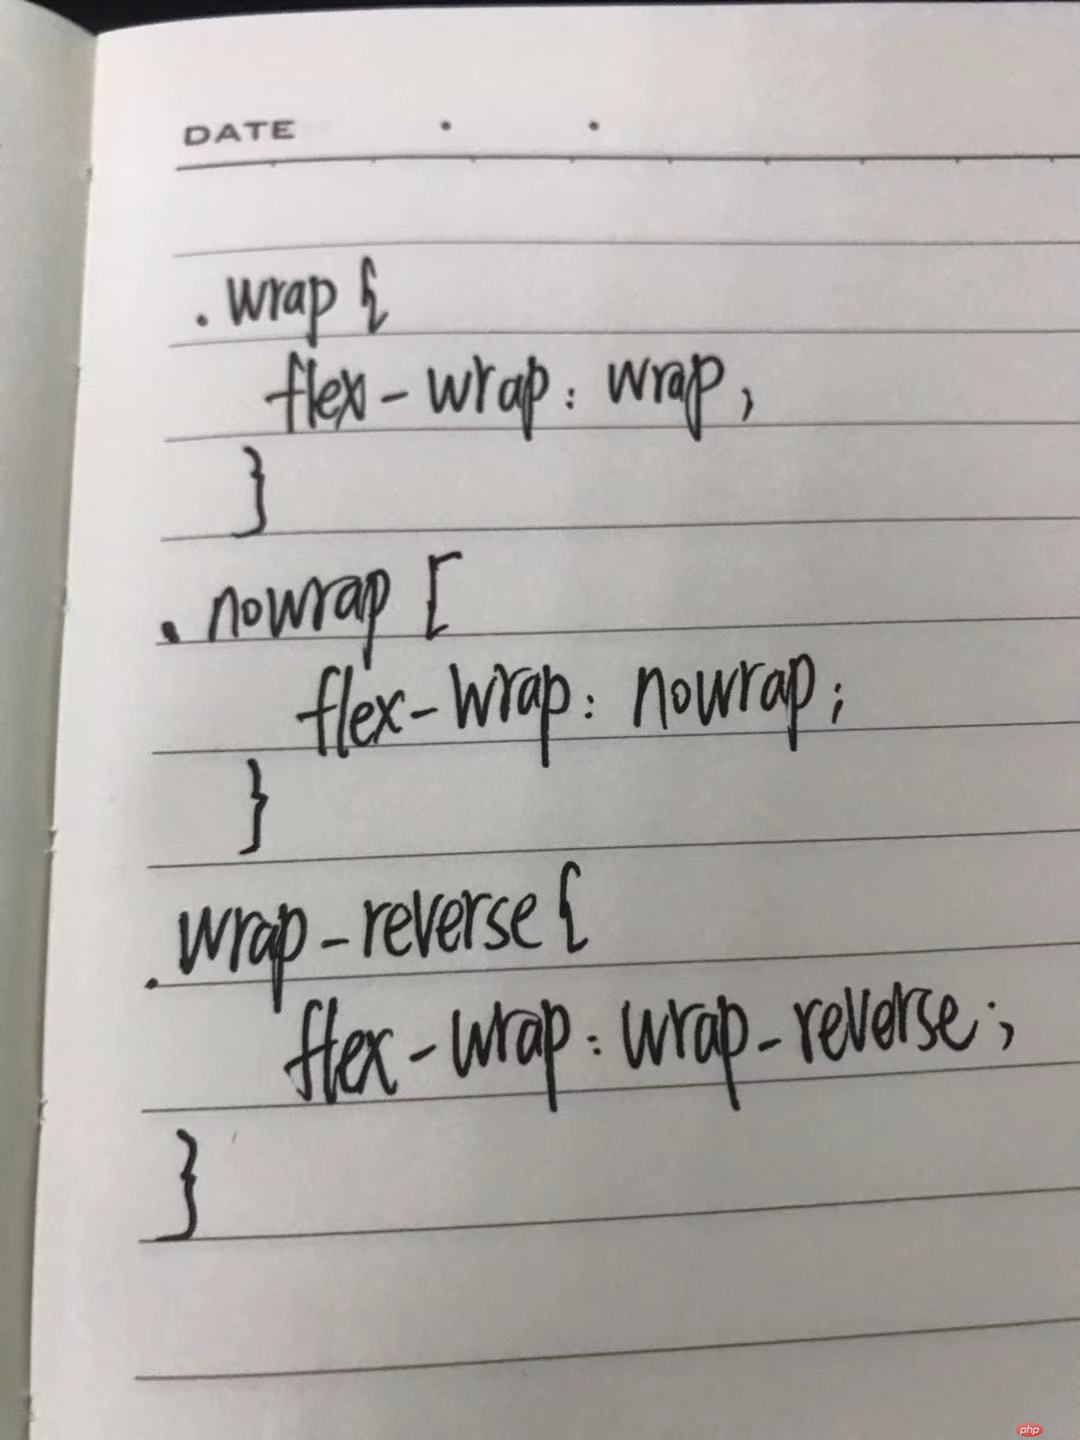 DATE . .
.wrap {
flex-wrap: wrap;
}
.nowrap [
flex-wrap: nowrap;
}
.wrap-reverse {
flex-wrap: wrap-reverse;
}
php